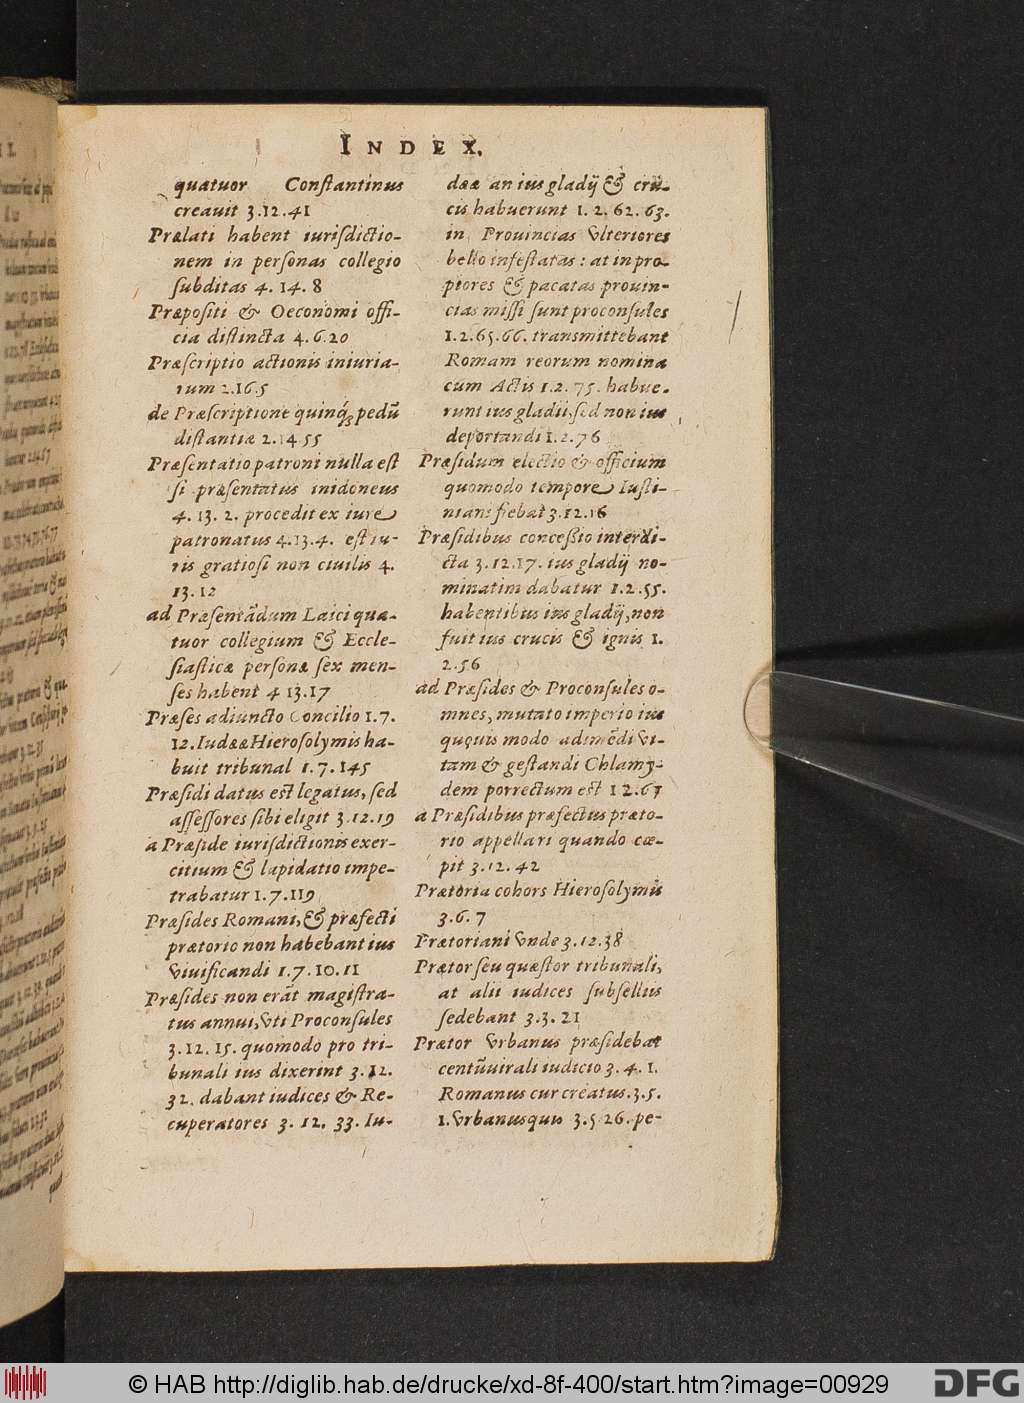 INDEX.
quatuor Conſtantinus
creauit 3.12.41
Prælati habent iuriſdictio-
nem in perſonas collegio
ſubditas 4. 14. 8
Præpoſiti & Oeconomi offi-
cia diſtincta 4.6.20
Præſcriptio actionis iniuria-
rum 2.16.5
de Præſcriptione quinq́; pedũ
diſtantiæ 2.14 55
Præſentatio patroni nulla eſt
ſi præſentatus inidoneus
4. 13. 2. procedit ex iure
patronatus 4.13.4. eſt iu-
ris gratioſi non ciuilis 4.
13.12
ad Præſentãdum Laici qua-
tuor collegium & Eccle-
ſiaſticæ perſonæ ſex men-
ſes habent 4 13.17
Præſes adiuncto Concilio 1.7.
12. Iudææ Hieroſolymis ha-
buit tribunal 1.7.145
Præſidi datus eſt legatus, ſed
aſſeſſores ſibi eligit 3.12.19
a Præſide iuriſdictionis exer-
citium & lapidatio impe-
trabatur 1.7.119
Præſides Romani, & præfecti
prætorio non habebant ius
viuificandi 1.7.10.11
Præſides non erãt magiſtra-
tus annui, vti Proconſules
3.12. 15. quomodo pro tri-
bunali ius dixerint 3.12.
32. dabant iudices & Re-
cuperatores 3. 12. 33. Iu-
dææ an ius gladij & cru-
cis habuerunt 1. 2. 62. 63.
in Prouincias vlteriores
bello infeſtatas: at in pro-
piores & pacatas prouin-
cias miſſi ſunt proconſules
1.2.65.66. transmittebant
Romam reorum nomina
cum Actis 1.2. 75. habue-
runt ius gladii, ſed non ius
deportandi 1.2.76
Præſidum electio & officium
quomodo tempore Iuſti-
niani fiebat 3.12.16
Præſidibus conceßio interdi-
cta 3.12.17. ius gladij no-
minatim dabatur 1.2.55.
habentibus ius gladij, non
fuit ius crucis & ignis 1.
2.56
ad Præſides & Proconſules o-
mnes, mutato imperio ius
quouis modo adimẽdi vi-
tam & geſtandi Chlamy-
dem porrectum eſt 1 2.67
a Præſidibus præfectus præto-
rio appellari quando cœ-
pit 3.12. 42
Prætoria cohors Hieroſolymis
3.6.7
Prætoriani vnde 3.12.38
Prætor ſeu quæſtor tribunali,
at alii iudices ſubſelliis
ſedebant 3.3. 21
Prætor vrbanus præſidebat
centũuirali iudicio 3. 4. 1.
Romanus cur creatus. 3.5.
1. vrbanus quis 3.5 26. pe-
© HAB http://diglib.hab.de/drucke/xd-8f-400/start.htm?image=00929
DFG